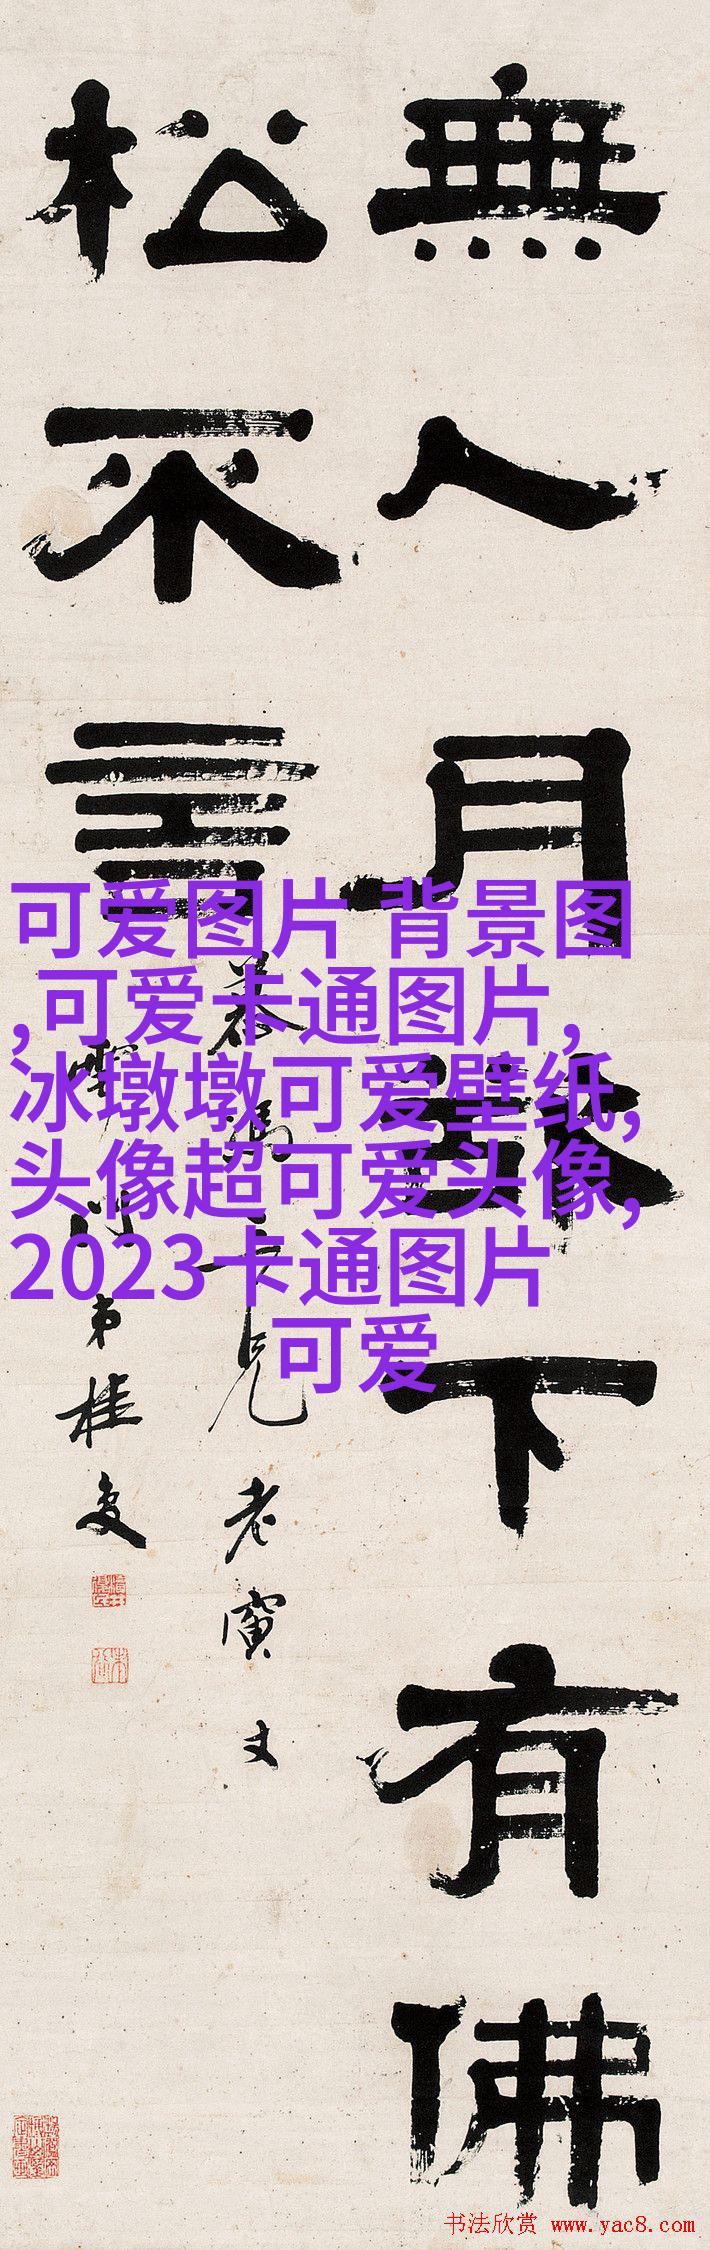 無人月林下有佛
松不言
老寅丈
雪門弟桂夋
可爱图片 背景图
,可爱卡通图片,
冰墩墩可爱壁纸,
头像超可爱头像,
2023卡通图片
可爱
书法欣赏 www.yac8.com